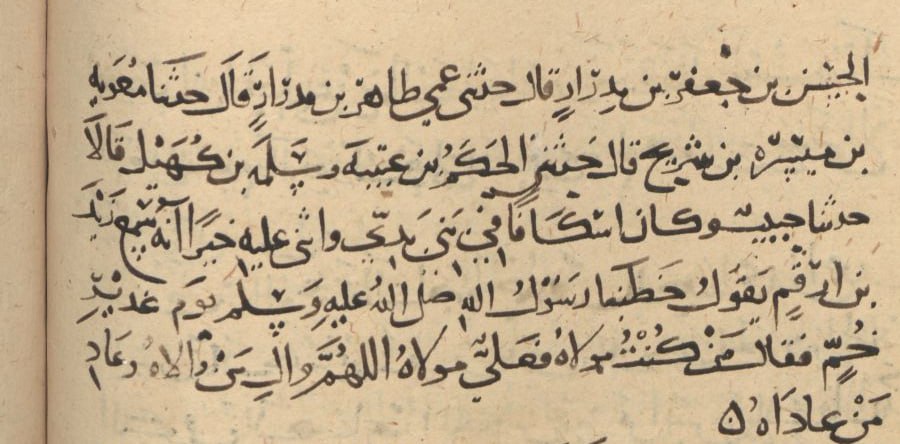 الحسين بن جعفر بن مدرار قال حدثني عمي طاهر بن مدرار قال حدثنا معوية
بن ميسره بن شريح قال حدثني الحكم بن عتيبه وسلمه بن كهيل قالا
حدثنا حبيب وكان اسكافا في بني بدي واثنى عليه خيرا انه سمع زيد
بن ارقم يقول خطبنا رسول الله صلى الله عليه وسلم يوم غدير
خم فقال من كنت مولاه فعلي مولاه اللهم وال من والاه وعاد
من عاداه